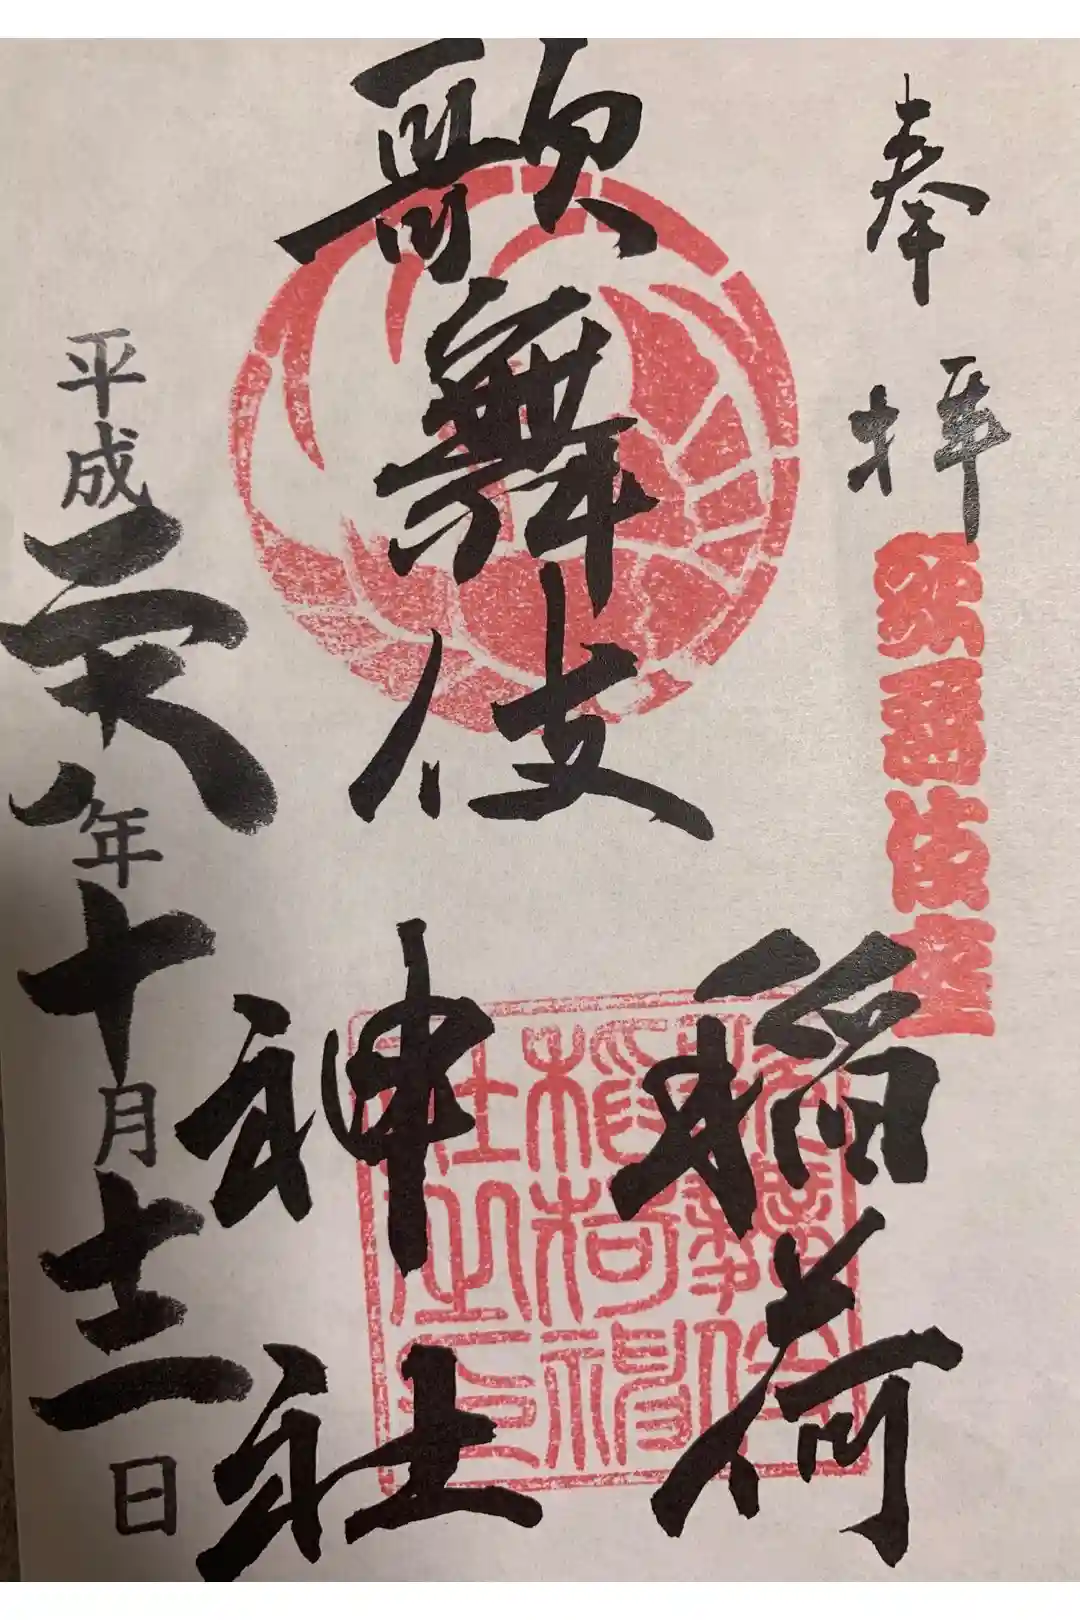 奉拝
歌舞伎座
歌舞伎
稲荷
神社
歌舞伎
稲荷神
社之印
平成二十八年十月十二日